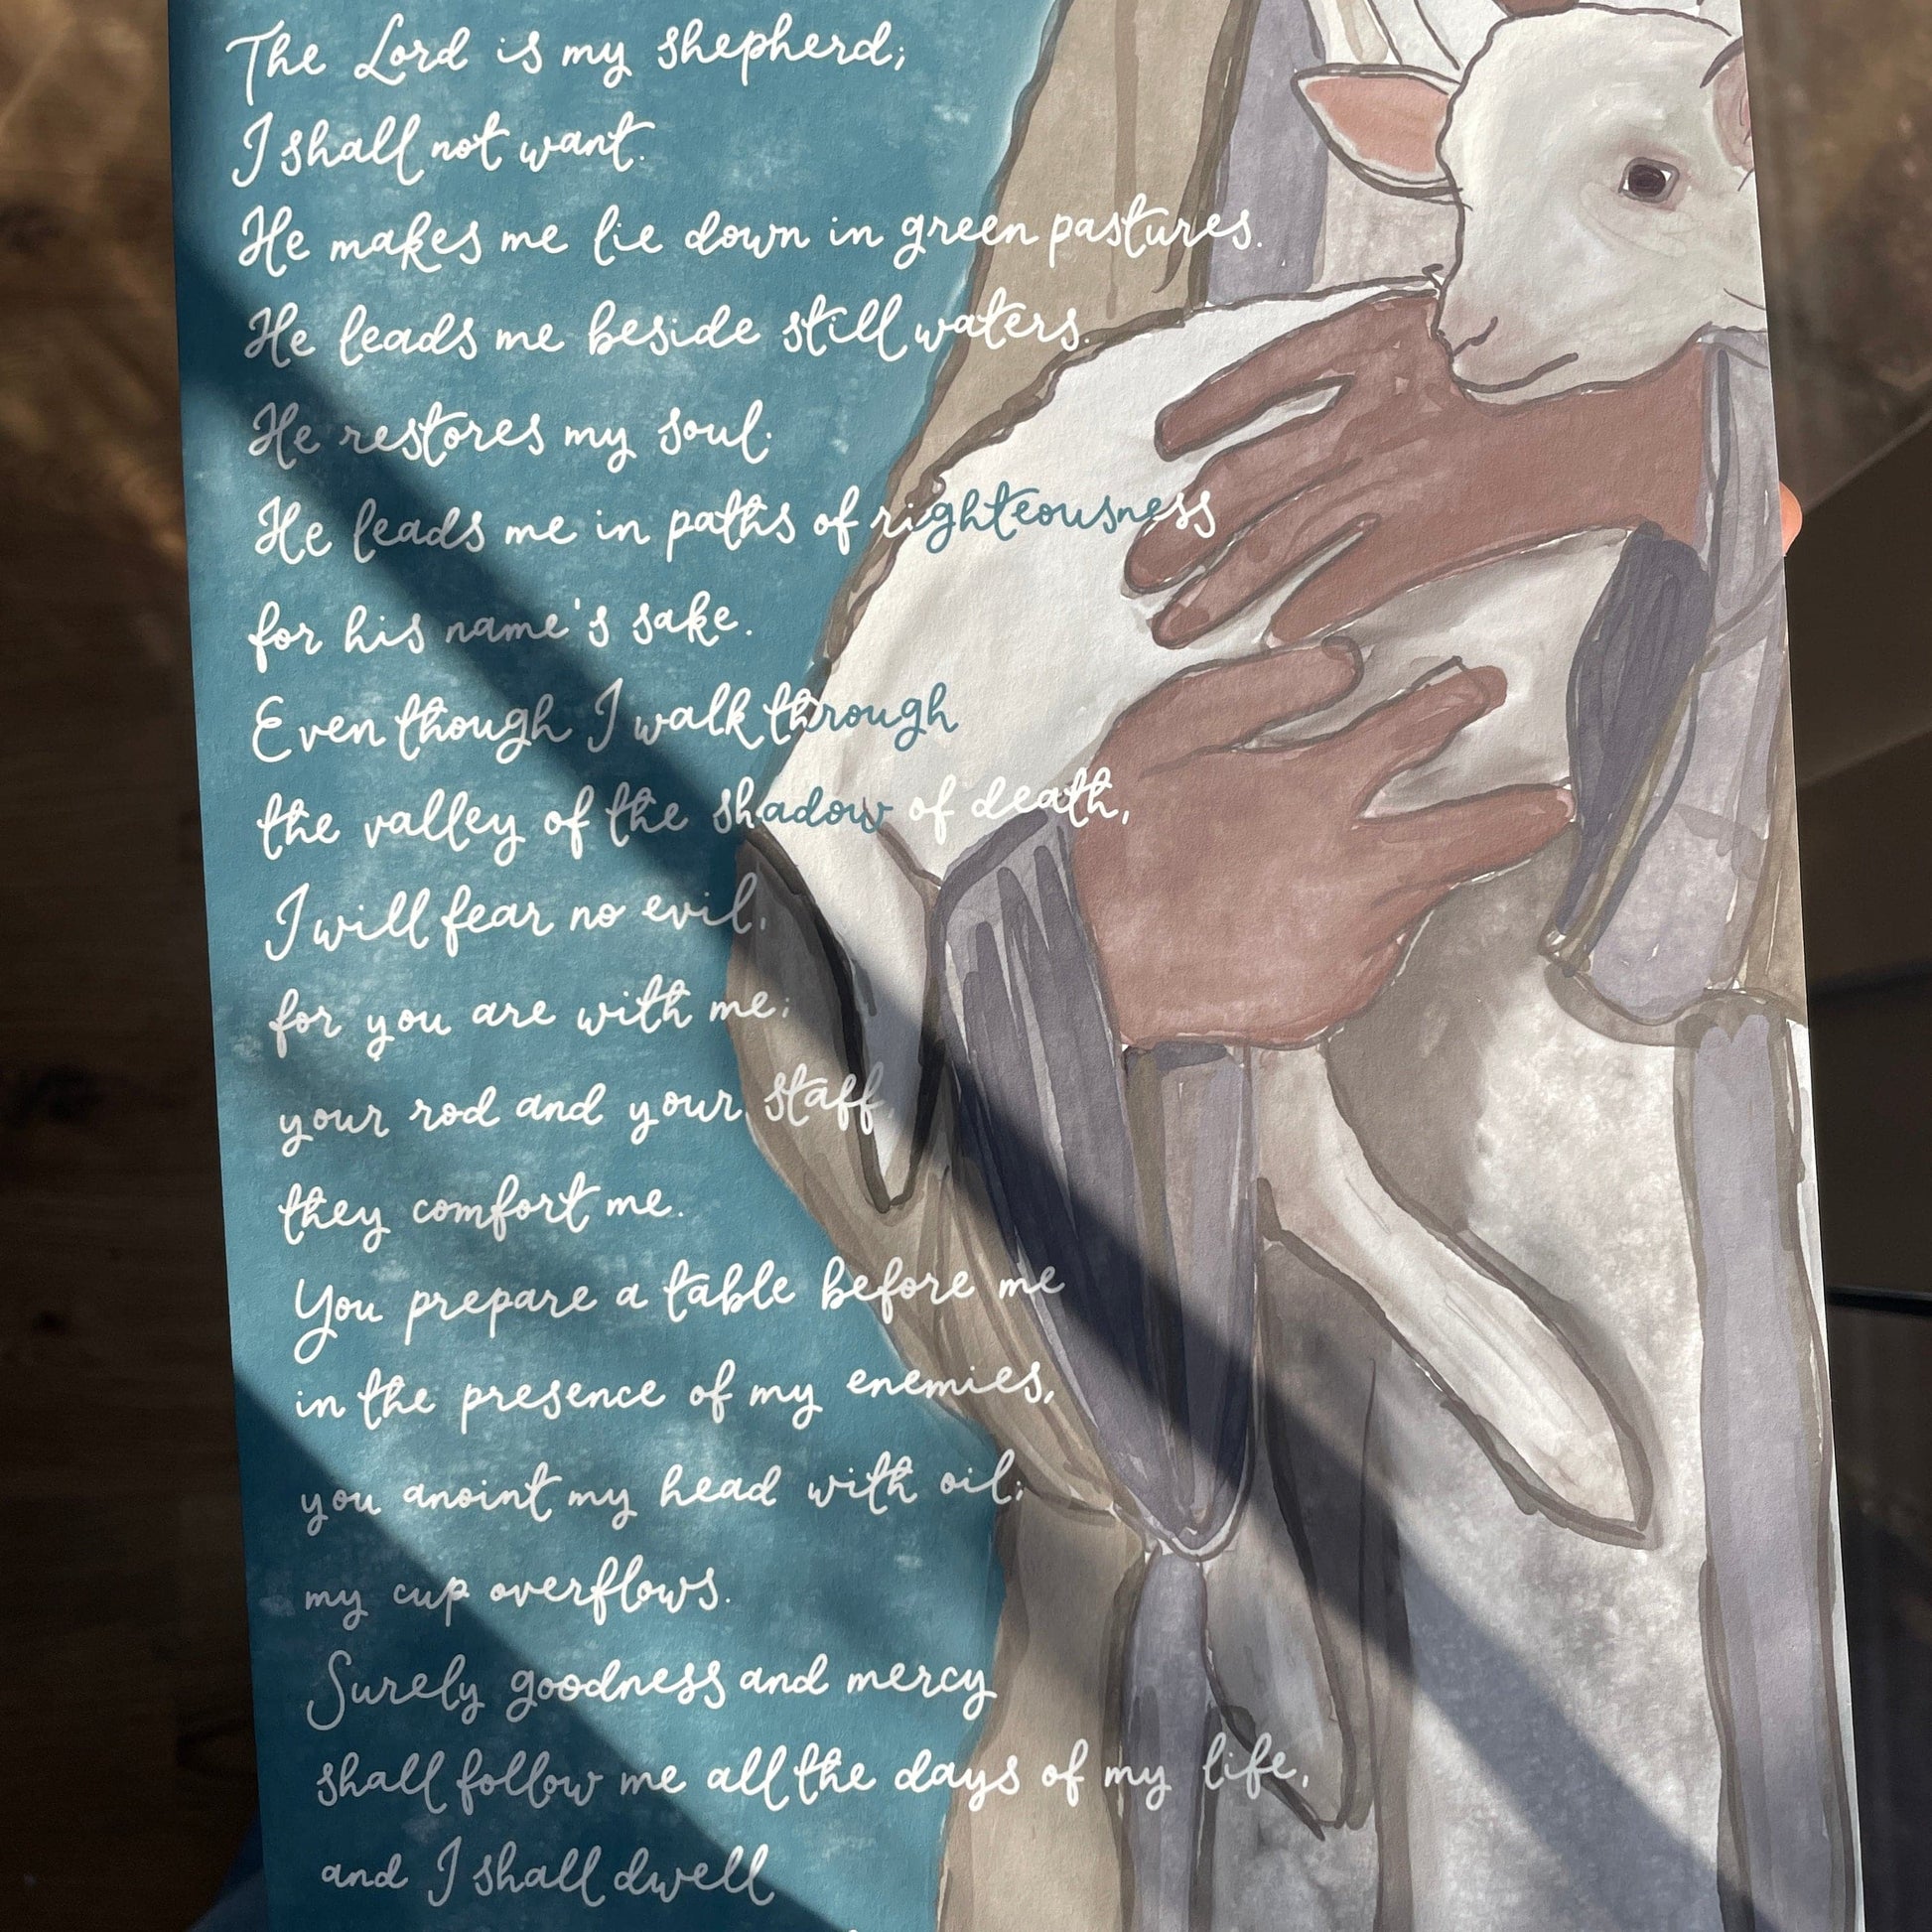 The Lord is my shepherd;
I shall not want.
He makes me lie down in green pastures.
He leads me beside still waters.
He restores my soul.
He leads me in paths of righteousness
for his name's sake.
Even though I walk through
the valley of the shadow of death,
I will fear no evil,
for you are with me;
your rod and your staff,
they comfort me.
You prepare a table before me
in the presence of my enemies,
you anoint my head with oil;
my cup overflows.
Surely goodness and mercy
shall follow me all the days of my life,
and I shall dwell